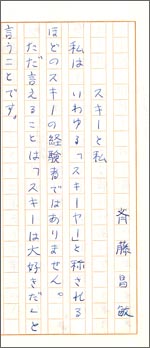 スキーと私
斉藤昌敏
私は いわゆる「スキーヤー」と称される
ほどのスキーの経験者ではありません。
ただ言えることは「スキーは大好きだ」と
言うことです。